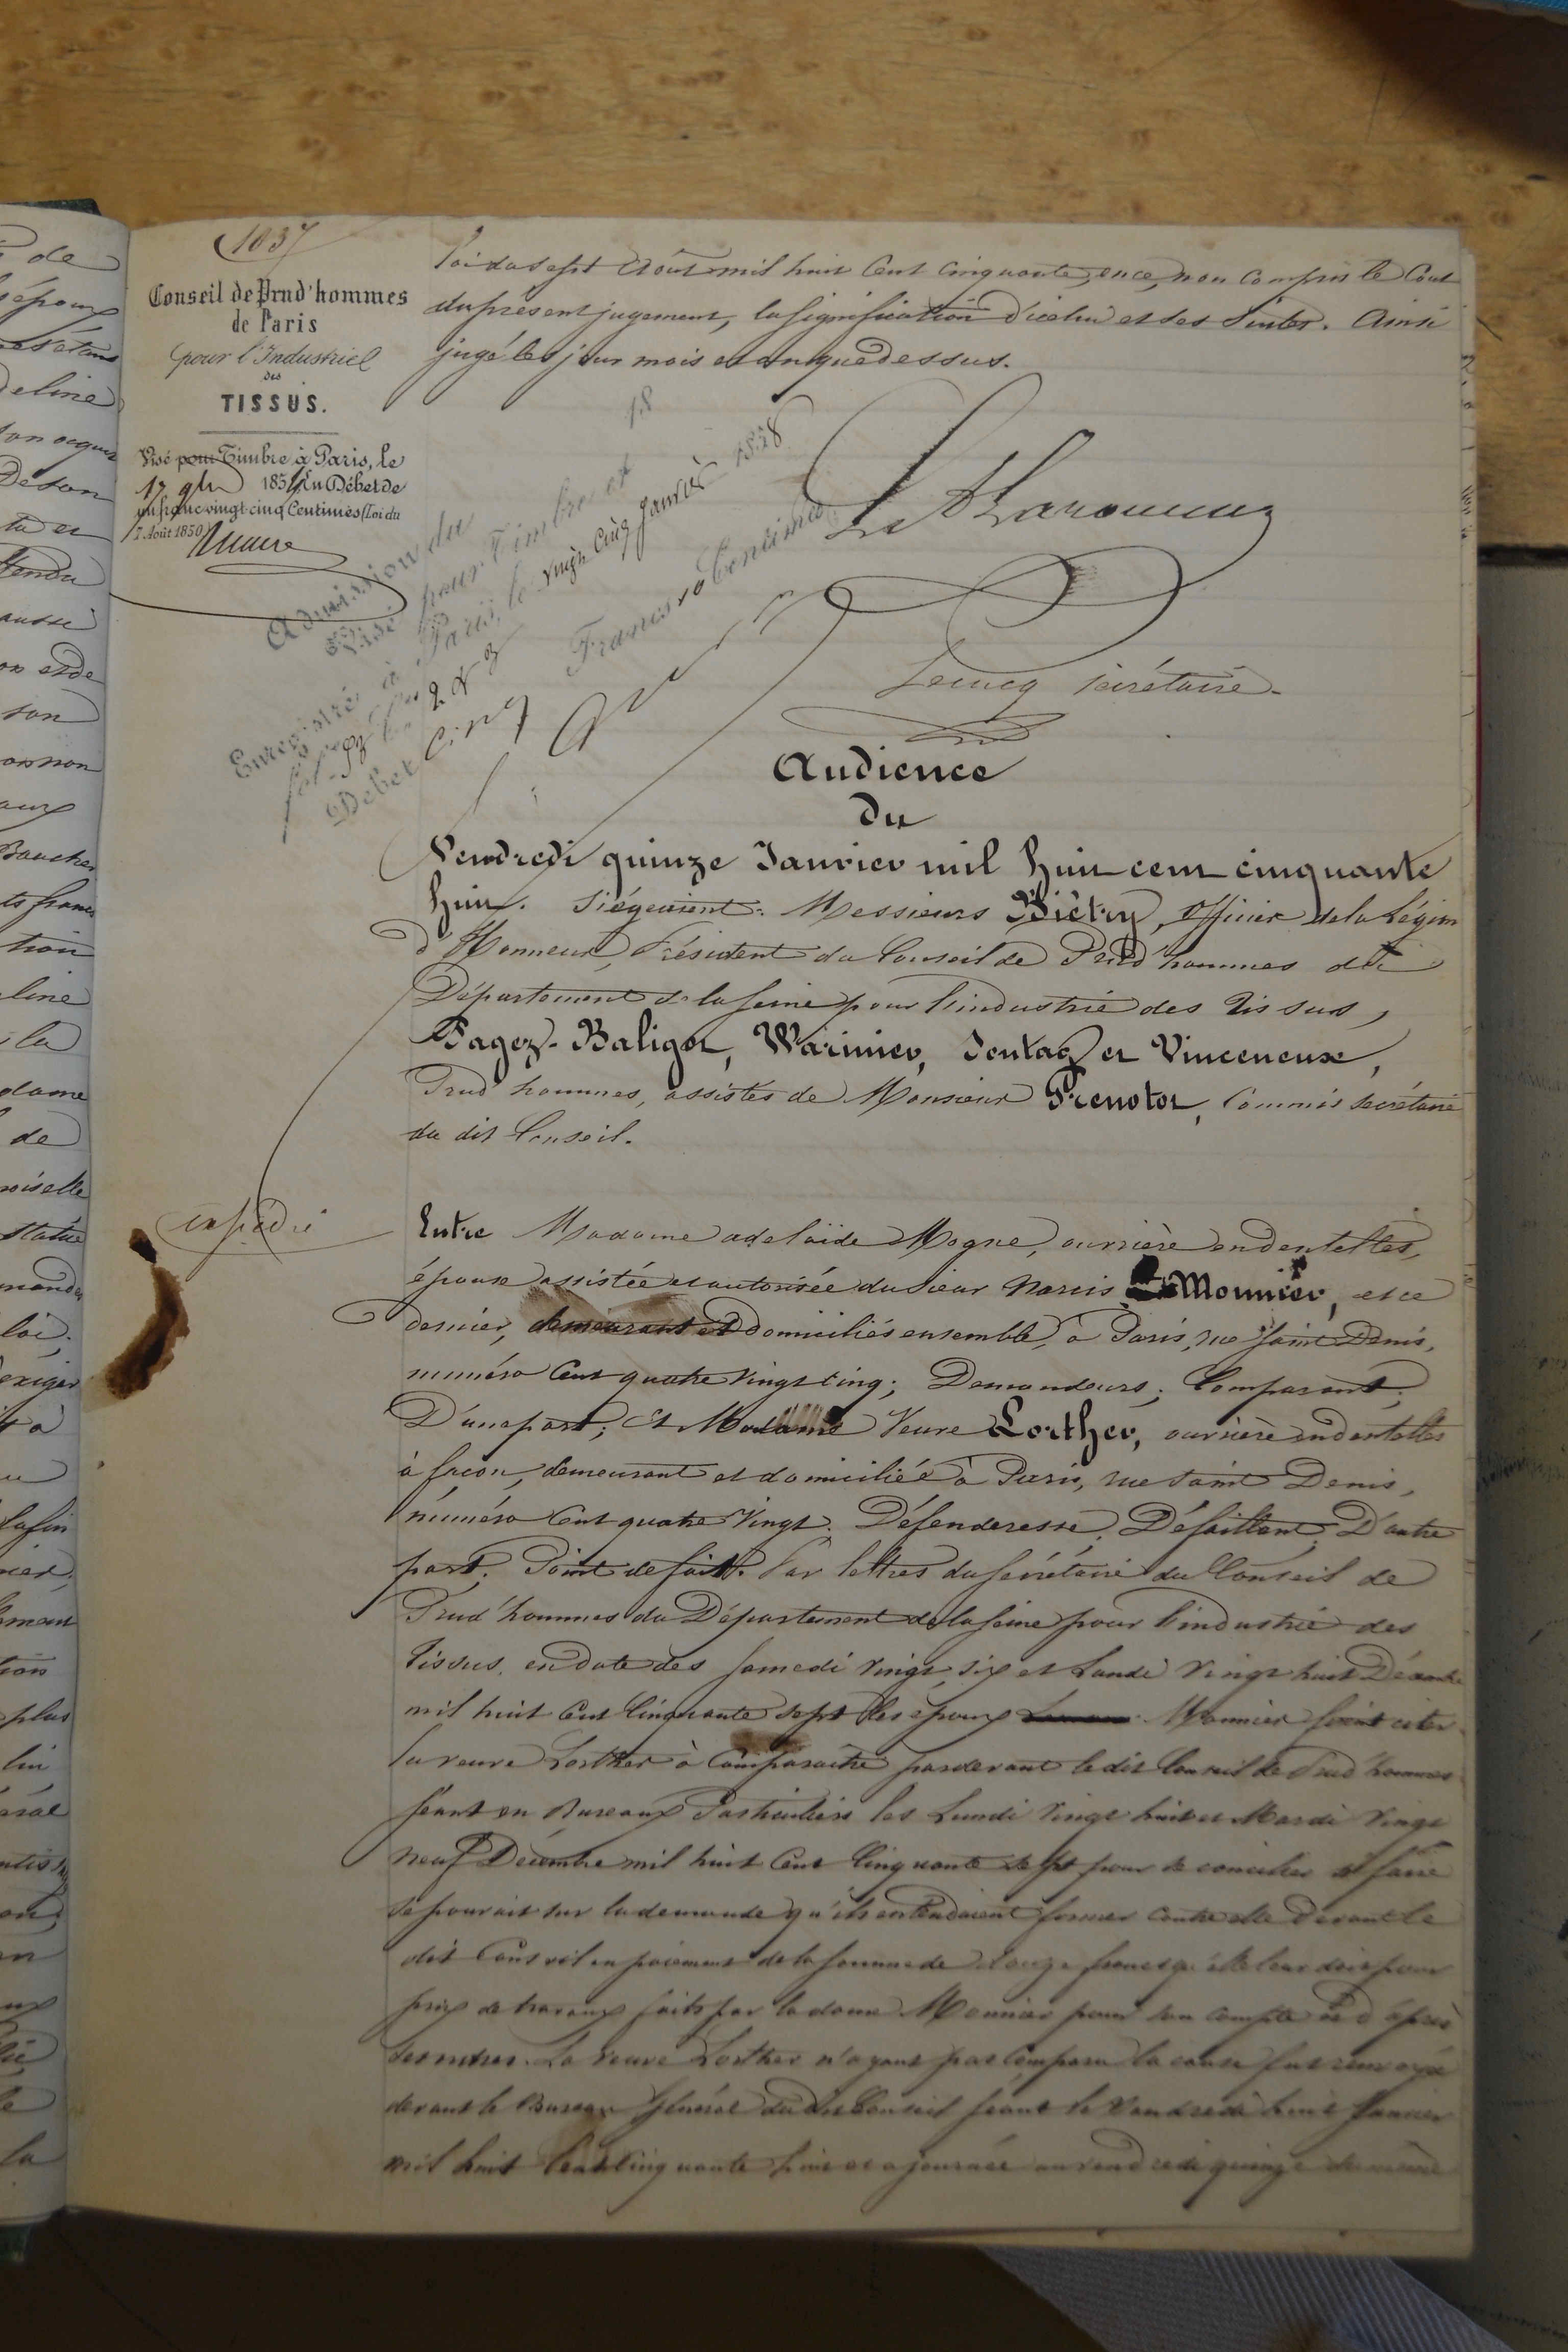 1037
Conseil de Prud'hommes
de Paris
pour l'Industriel
des
TISSUS.
Visé pour Timbre à Paris, le
17 9bre 1857 En Débet de
un franc vingt-cinq Centimes (Loi du
7 Août 1850)
loi du sept Août mil huit Cent Cinquante, ence, non Compris le Cout
du présent jugement, la signification d'icelui et ses suites. Ainsi
jugé les jour mois et an que dessus.
18
Admission du
Visé pour Timbre et
Enregistré à Paris, le vingt Cinq Janvier 1858
Debet Cinq Francs 10 Centimes
Lecucq secrétaire
Audience
du
Vendredi quinze Janvier mil huit cent cinquante
huit. Siégeaient: Messieurs Biétry, officier de la Légion
d'Honneur, Président du Conseil de Prud'hommes du
Département de la Seine pour l'industrie des Tissus,
Fagez-Baligot, Warinier, Sentag et Vinceneux,
Prud'hommes, assistés de Monsieur Prenotot, Commis secrétaire
du dit Conseil.
expédié
Entre Madame adelaïde Mogne, ouvrière en dentelles,
épouse assistée et autorisée du sieur Narcis Monnier, et ce
dernier, demeurant et domiciliés ensemble à Paris, rue Saint Denis,
numéro Cent quatre vingt cinq; Demandeurs; Comparant;
D'une part; Et Madame Veuve Lorther, ouvrière en dentelles
à façon, demeurant et domiciliée à Paris, rue Saint Denis,
numéro Cent quatre Vingt; Défenderesse; Défaillant; D'autre
part. Point de fait. Par lettres du secrétaire du Conseil de
Prud'hommes du Département de la Seine pour l'industrie des
Tissus, en date des samedi vingt six et Lundi vingt huit Décembre
mil huit Cent Cinquante sept les époux Monnier firent citer
la veuve Lorther à Comparaître pardevant le dit Conseil de Prud'hommes
séant en Bureaux Particuliers les Lundi vingt huit et Mardi vingt
neuf Décembre mil huit Cent Cinquante sept pour se concilier si faire
se pouvait sur la demande qu'ils entendaient former contre elle devant le
dit Conseil en paiement de la somme de douze francs qu'elle leur doit pour
prix de travaux faits par la dame Monnier pour son compte et d'après
ses ordres. La veuve Lorther n'ayant pas Comparu la cause fut renvoyée
devant le Bureau Général du dit Conseil séant le Vendredi huit Janvier
mil huit Cent Cinquante huit et ajournée au vendredi quinze du même